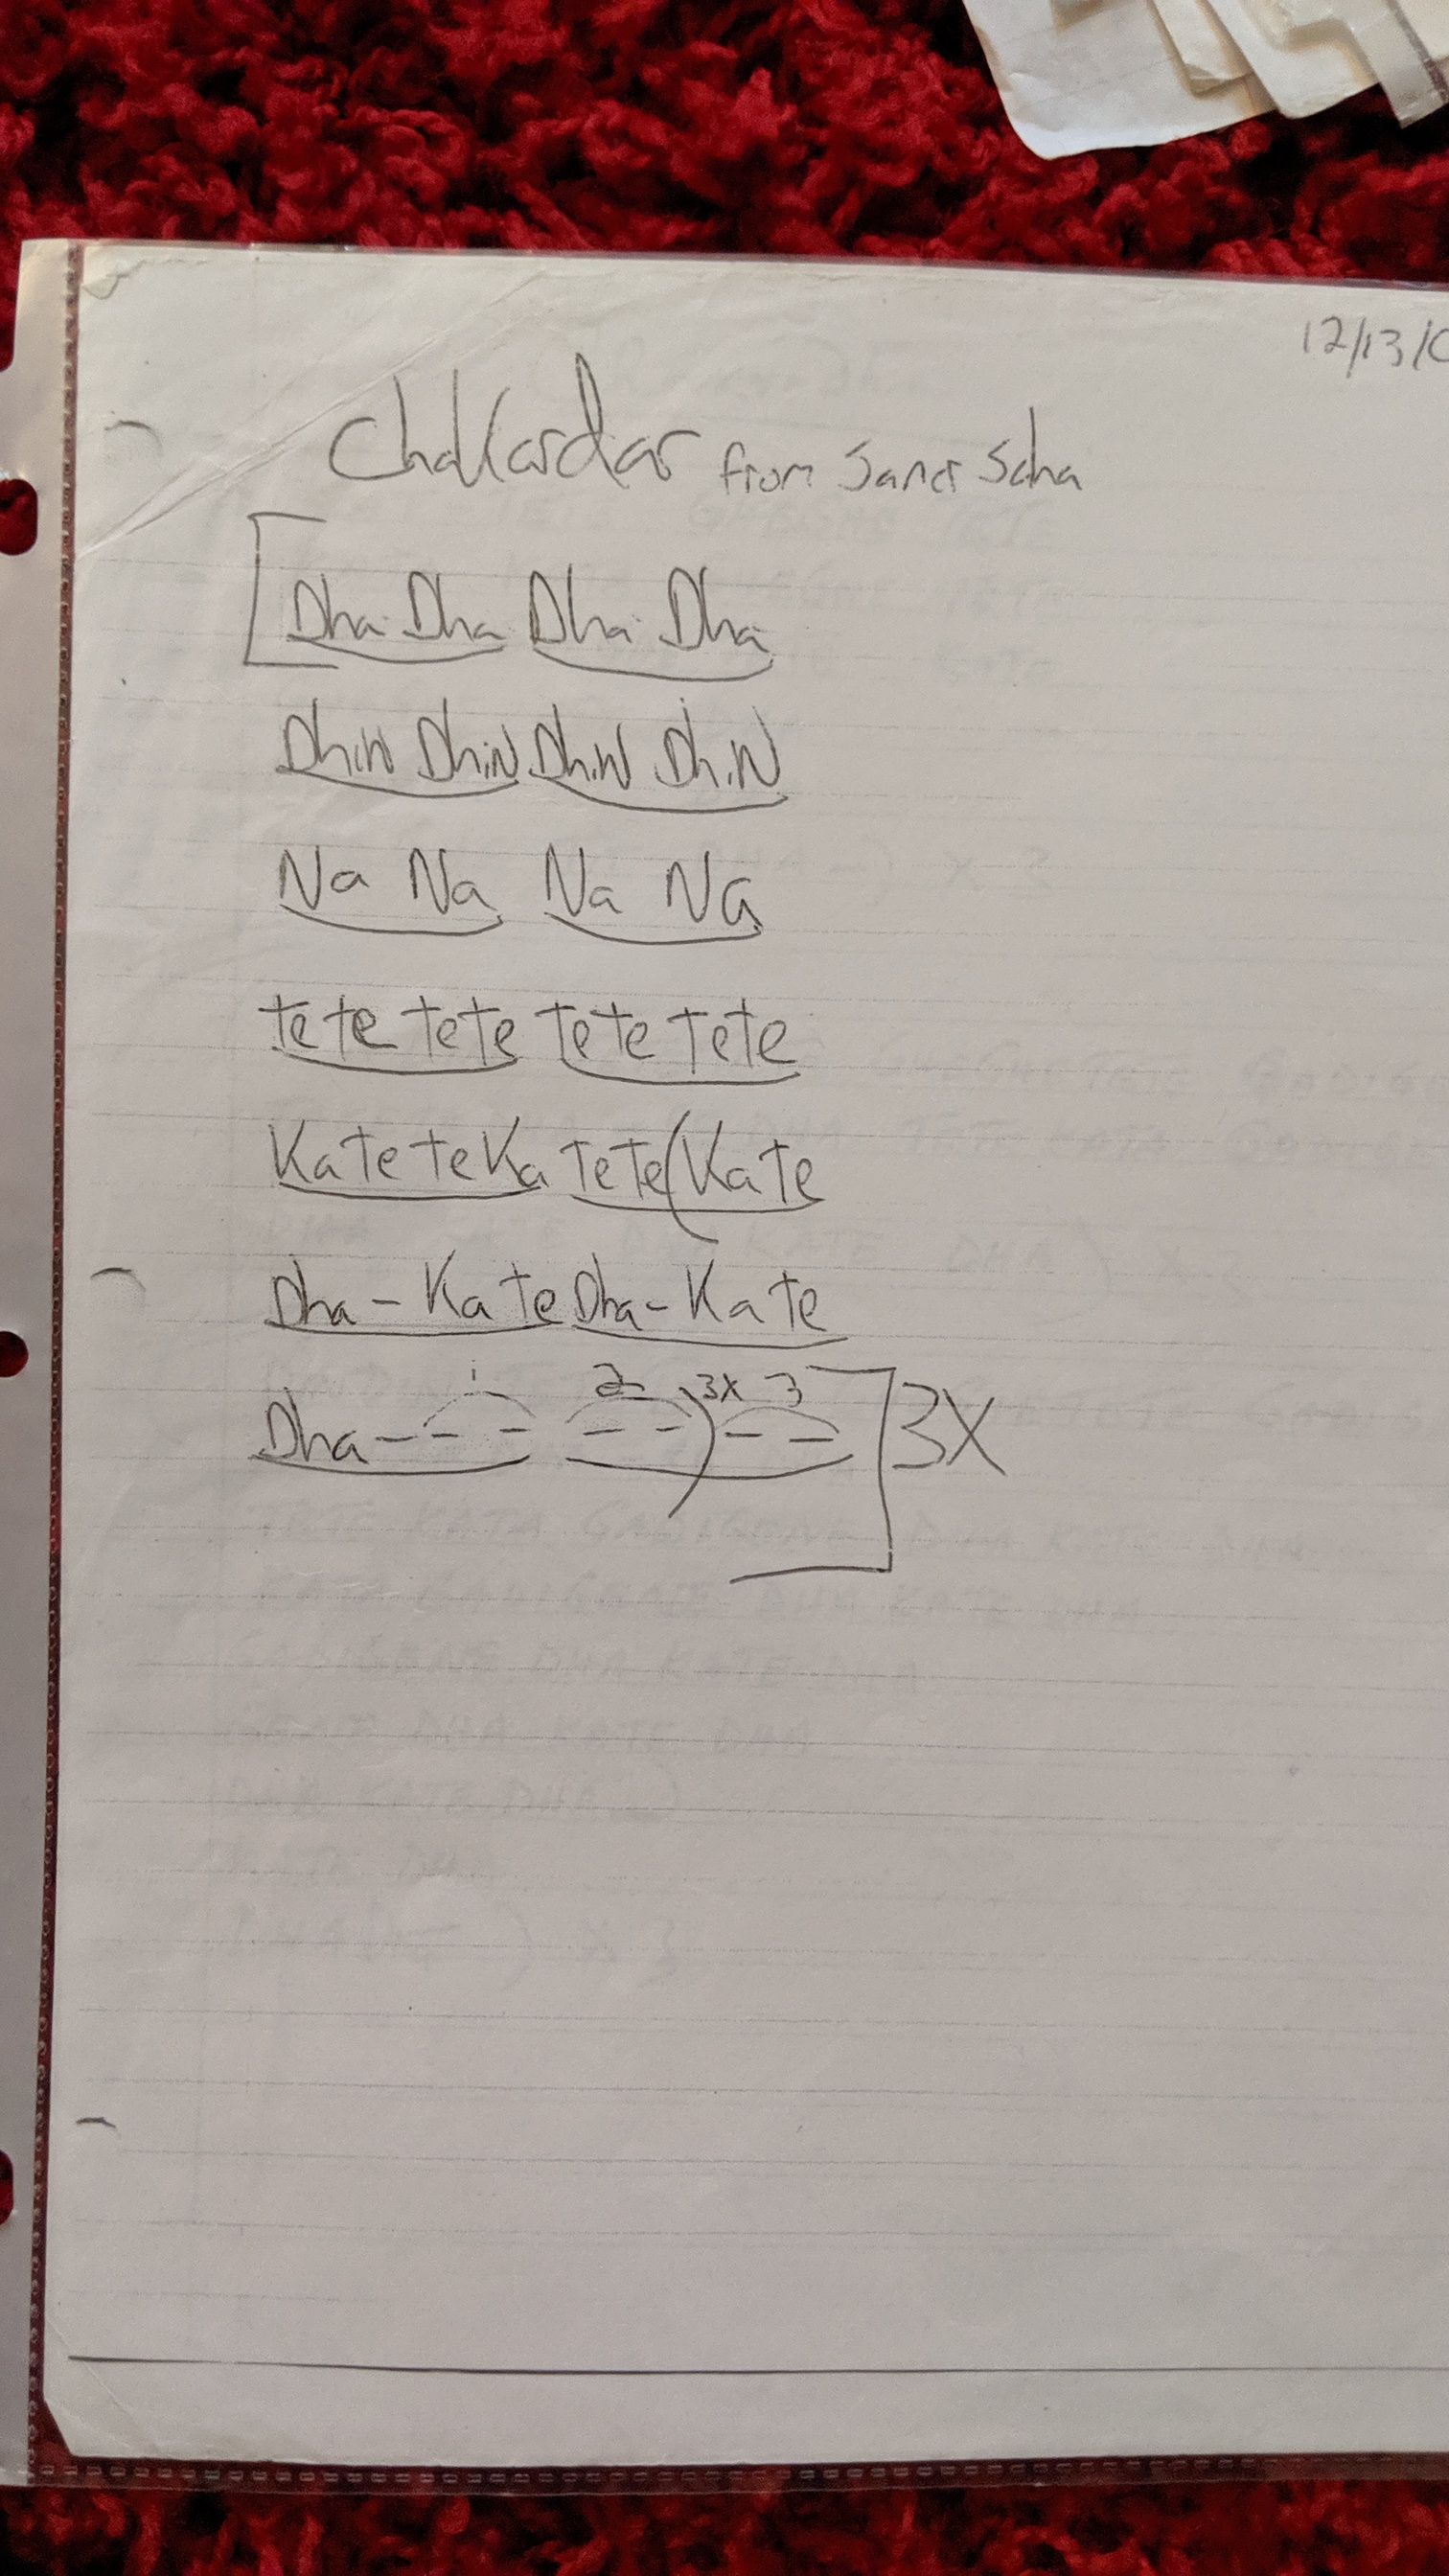 12/13/0
Chakardar from Sanct Saha
[Dha Dha Dha Dha
Dhin Dhin Dhin Dhin
Na Na Na Na
tete tete tete tete
Katete Ka tete(Kate
Dha - Kate Dha - Kate
1 2 3x 3
Dha - - - - -) - - ] 3X